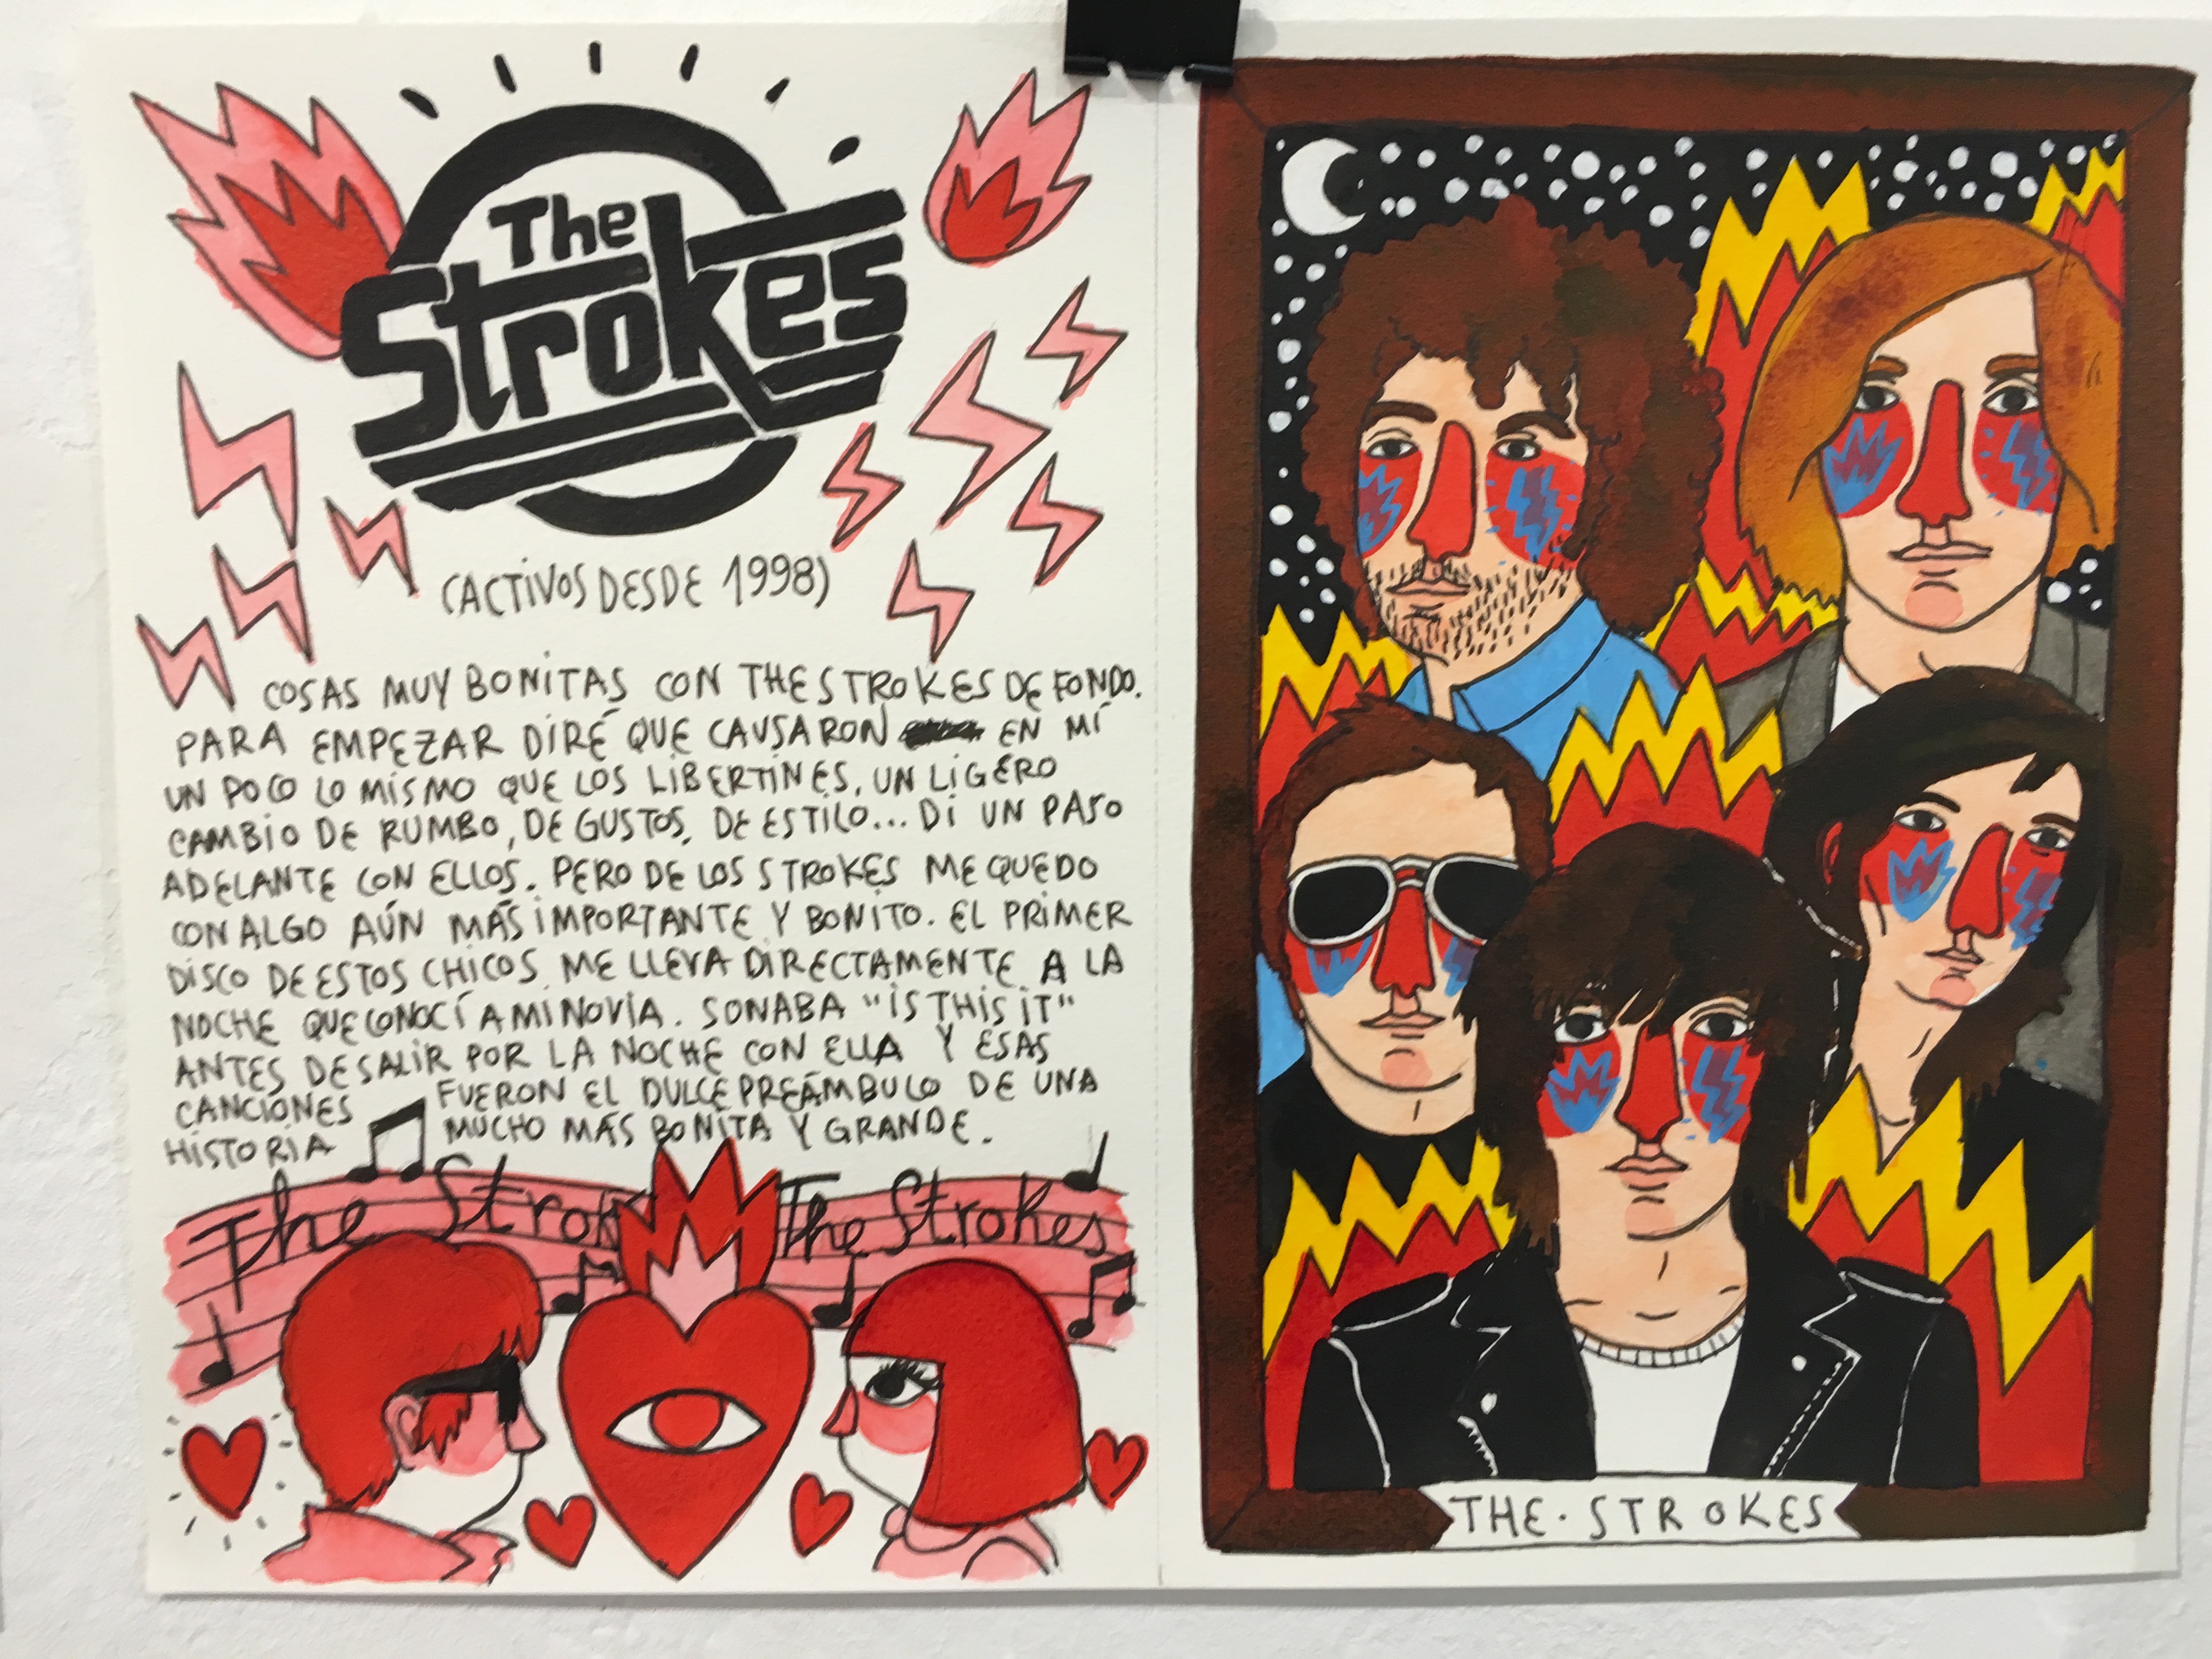 The
Strokes
(ACTIVOS DESDE 1998)
COSAS MUY BONITAS CON THE STROKES DE FONDO.
PARA EMPEZAR DIRÉ QUE CAUSARON EN MÍ
UN POCO LO MISMO QUE LOS LIBERTINES, UN LIGERO
CAMBIO DE RUMBO, DE GUSTOS, DE ESTILO... DI UN PASO
ADELANTE CON ELLOS. PERO DE LOS STROKES ME QUEDO
CON ALGO AÚN MÁS IMPORTANTE Y BONITO. EL PRIMER
DISCO DE ESTOS CHICOS ME LLEVA DIRECTAMENTE A LA
NOCHE QUE CONOCÍ A MI NOVIA. SONABA "IS THIS IT"
ANTES DE SALIR POR LA NOCHE CON ELLA Y ESAS
CANCIONES FUERON EL DULCE PREÁMBULO DE UNA
HISTORIA MUCHO MÁS BONITA Y GRANDE.
The Strok The Strokes
THE · STROKES